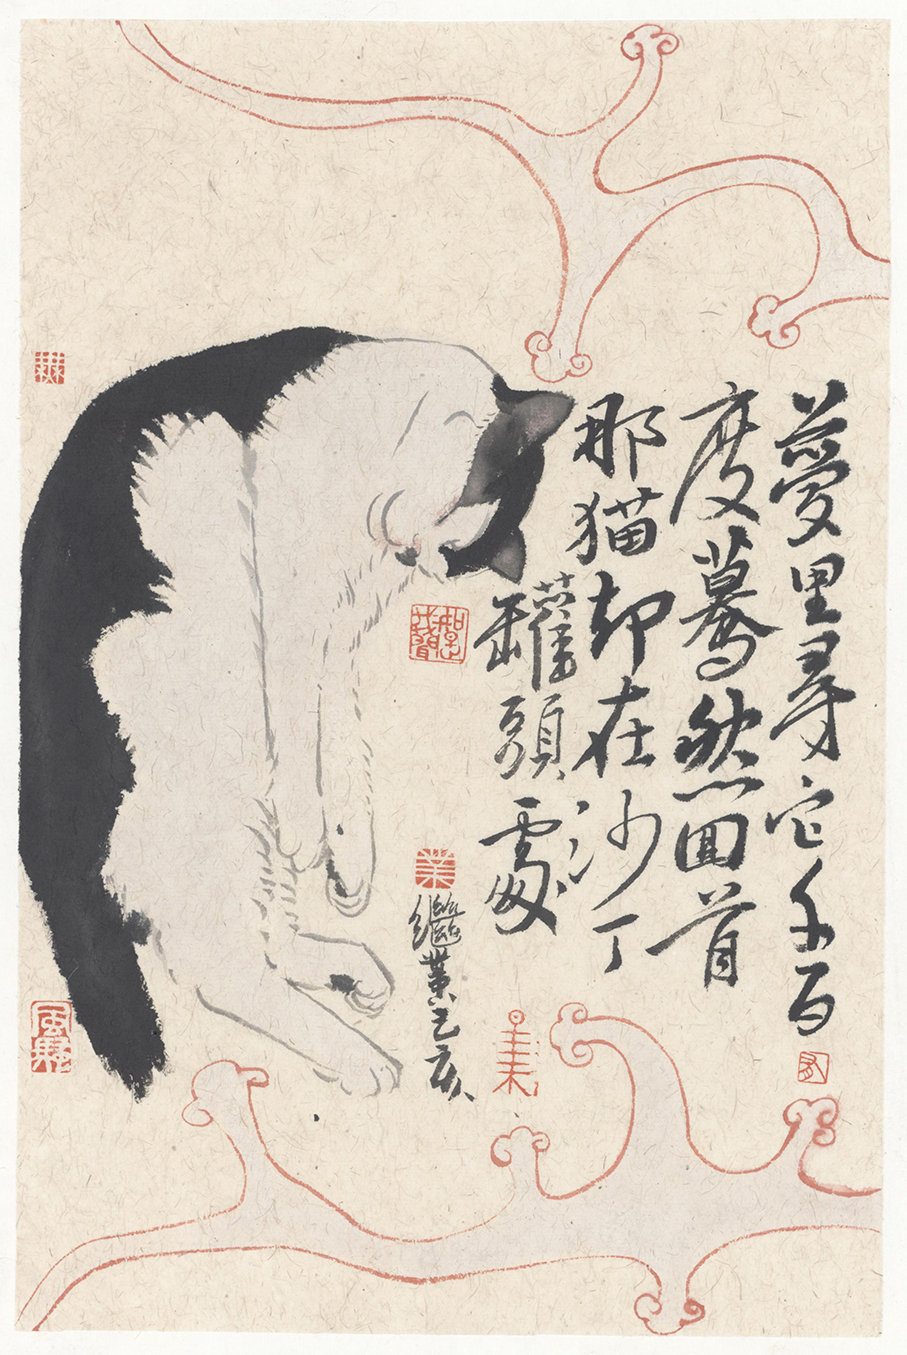 夢里尋它千百
度驀然回首
那猫却在沙丁
罐頭處
繼業己亥
業